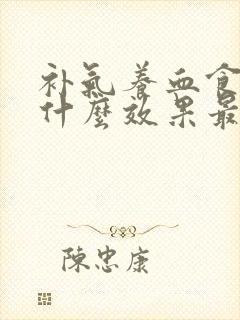 补氣養血食
什麼效果最
陳忠康